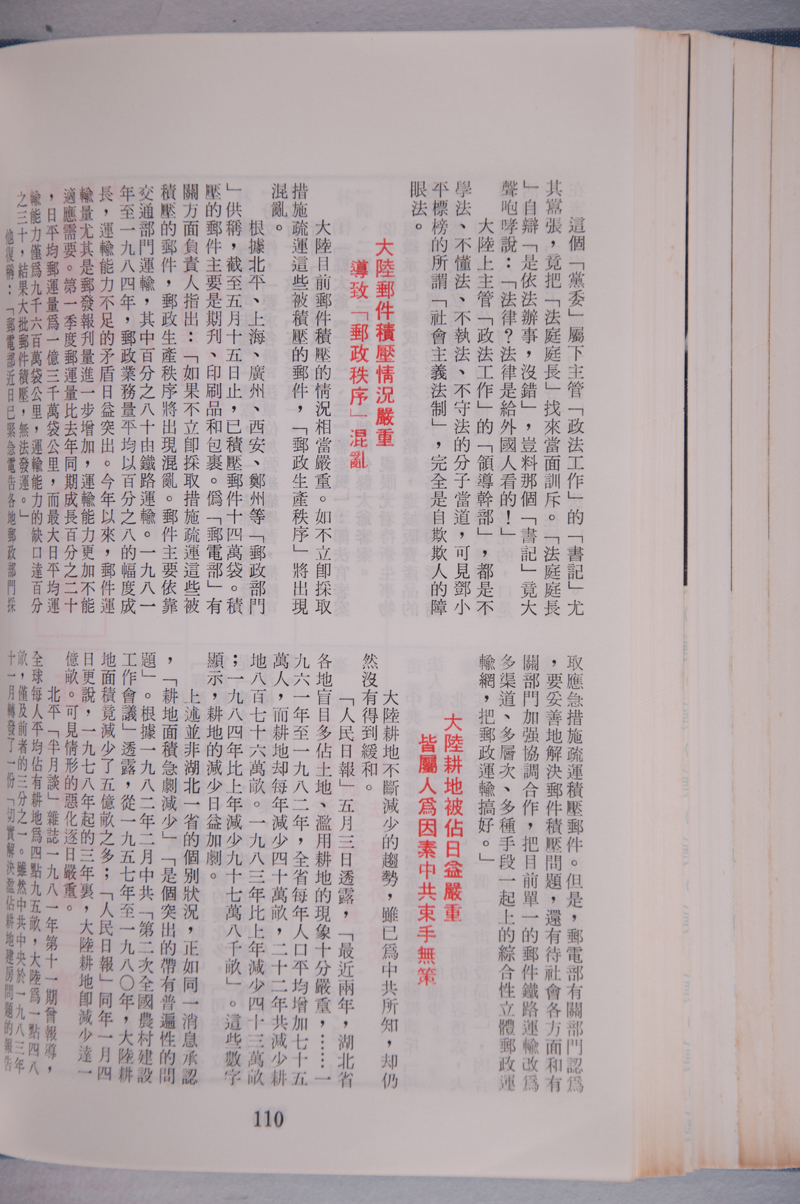 這個「黨委」屬下主管「政法工作」的「書記」尤
其囂張，竟把「法庭庭長」找來當面訓斥。「法庭庭長
」自辯「是依法辦事，沒錯」，豈料那個「書記」竟大
聲咆哮說：「法律？法律是給外國人看的！」
大陸上主管「政法工作」的「領導幹部」，都是不
學法、不懂法、不執法、不守法的分子當道，可見鄧小
平標榜的所謂「社會主義法制」，完全是自欺欺人的障
眼法。
大陸郵件積壓情況嚴重
導致「郵政秩序」混亂
大陸目前郵件積壓的情況相當嚴重。如不立卽採取
措施疏運這些被積壓的郵件，「郵政生產秩序」將出現
混亂。
根據北平、上海、廣州、西安、鄭州等「郵政部門
」供稱，截至五月十五日止，已積壓郵件十四萬袋。積
壓的郵件主要是期刊、印刷品和包裹。僞「郵電部」有
關方面負責人指出：「如果不立卽採取措施疏運這些被
積壓的郵件，郵政生產秩序將出現混亂。郵件主要依靠
交通部門運輸，其中百分之八十由鐵路運輸。一九八一
年至一九八四年，郵政業務量平均以百分之八的幅度成
長，運輸能力不足的矛盾日益突出。今年以來，郵件運
輸量尤其是郵發報刊量進一步增加，運輸能力更加不能
適應需要。第一季度郵運量比去年同期成長百分之二十
，日平均郵運量爲一億三千萬袋公里，而最大日平均運
輸能力僅爲九千六百萬袋公里，運輸能力的缺口達百分
之三十，結果大批郵件積壓，無法發運。」
他復稱：「郵電部近日已緊急電告各地郵政部門採
取應急措施疏運積壓郵件。但是，郵電部有關部門認爲
，要妥善地解決郵件積壓問題，還有待社會各方面和有
關部門加強協調合作，把目前單一的郵件鐵路運輸改爲
多渠道、多層次、多種手段一起上的綜合性立體郵政運
輸網，把郵政運輸搞好。」
大陸耕地被佔日益嚴重
皆屬人爲因素中共束手無策
大陸耕地不斷減少的趨勢，雖已爲中共所知，却仍
然沒有得到緩和。
「人民日報」五月三日透露，「最近兩年，湖北省
各地盲目多佔土地、濫用耕地的現象十分嚴重，……一
九六一年至一九八二年，全省每年人口平均增加七十五
萬人，而耕地却每年減少四十萬畝，二十二年共減少耕
地八百七十六萬畝。一九八三年比上年減少四十三萬畝
；一九八四年比上年減少九十七萬八千畝」。這些數字
顯示，耕地的減少日益加劇。
上述並非湖北一省的個別狀況，正如同一消息承認
，「耕地面積急劇減少」「是個突出的帶有普遍性的問
題」。根據一九八二年二月中共「第二次全國農村建設
工作會議」透露，從一九五七年至一九八〇年，大陸耕
地面積竟減少了五億畝之多；「人民日報」同年一月四
日更說，一九七八年起的三年裏，大陸耕地卽減少達一
億畝。可見情形的惡化逐日嚴重。
北平「半月談」雜誌一九八一年第十一期曾報導，
全球每人平均佔有耕地爲四點九五畝，大陸爲一點四八
畝，僅及前者的三分之一。雖然中共中央於一九八三年
十一月轉發了一份「切實解決濫佔耕地建房問題的報告
110